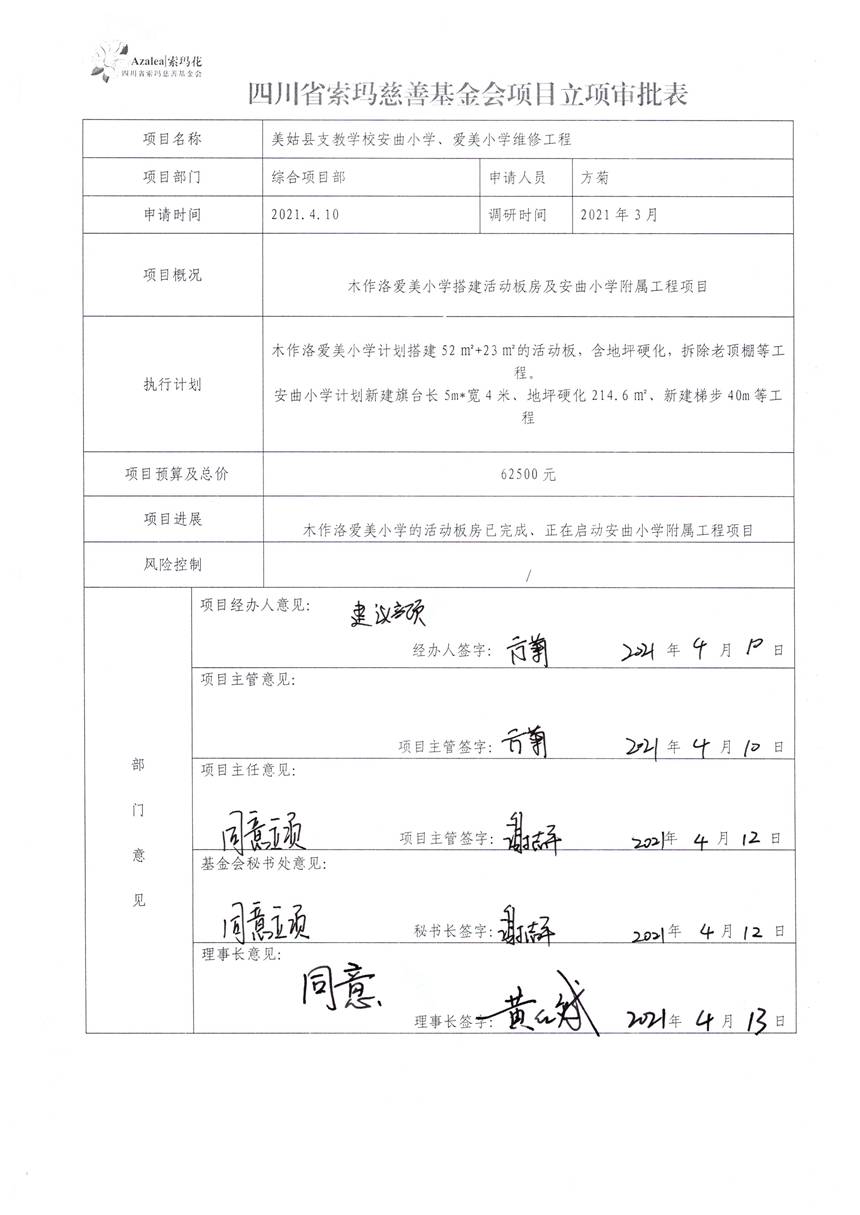 Azalea|索玛花
四川省索玛慈善基金会
四川省索玛慈善基金会项目立项审批表
项目名称 美姑县支教学校安曲小学、爱美小学维修工程
项目部门 综合项目部 申请人员 方菊
申请时间 2021.4.10 调研时间 2021 年 3 月
项目概况 木作洛爱美小学搭建活动板房及安曲小学附属工程项目
执行计划 木作洛爱美小学计划搭建 52 ㎡+23 ㎡的活动板，含地坪硬化，拆除老顶棚等工
程。
安曲小学计划新建旗台长 5m*宽 4 米、地坪硬化 214.6 ㎡、新建梯步 40m 等工
程
项目预算及总价 62500 元
项目进展 木作洛爱美小学的活动板房已完成、正在启动安曲小学附属工程项目
风险控制 /
部门意见
项目经办人意见： 建议立项
经办人签字：方菊 2021 年 4 月 10 日
项目主管意见：
项目主管签字：方菊 2021 年 4 月 10 日
项目主任意见：
同意立项 项目主管签字： 2021年 4 月 12 日
基金会秘书处意见：
同意立项 秘书长签字： 2021年 4 月 12 日
理事长意见：
同意
理事长签字： 2021年 4 月 13 日